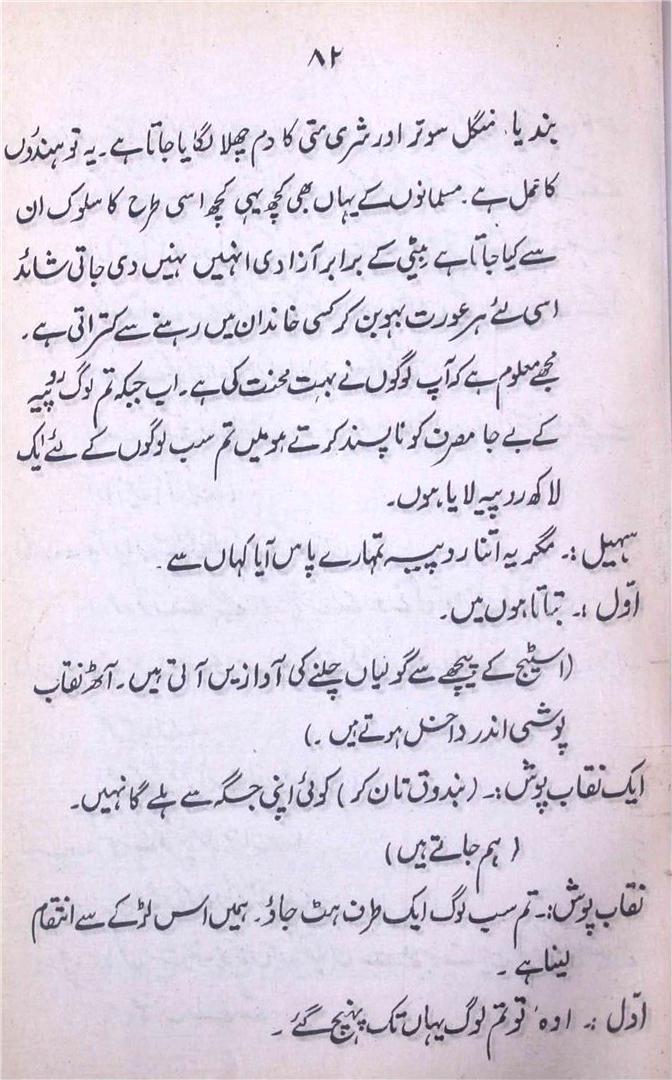 ۸۲
بندیا، منگل سوتر اور شری متی کا دم چھلا لگایا جاتا ہے۔ یہ تو ہندوں
کا عمل ہے۔ مسلمانوں کے یہاں بھی کچھ یہی کچھ اسی طرح کا سلوک ان
سے کیا جاتا ہے بیٹی کے برابر آزادی انہیں نہیں دی جاتی شائد
اسی لئے ہر عورت بہو بن کر کسی خاندان میں رہنے سے کتراتی ہے۔
مجھے معلوم ہے کہ آپ لوگوں نے بہت محنت کی ہے۔ اب جبکہ تم لوگ روپیہ
کے بے جا مصرف کو ناپسند کرتے ہو میں تم سب لوگوں کے لئے ایک
لاکھ روپیہ لایا ہوں۔
سہیل :۔ مگر یہ اتنا روپیہ تمہارے پاس آیا کہاں سے۔
اوّل :۔ بتاتا ہوں میں۔
(اسٹیج کے پیچھے سے گولیاں چلنے کی آوازیں آتی ہیں۔ آٹھ نقاب
پوشی اندر داخل ہوتے ہیں۔)
ایک نقاب پوش :۔ (بندوق تان کر) کوئی اپنی جگہ سے ہلے گا نہیں۔
(ہم جاتے ہیں)
نقاب پوش :۔ تم سب لوگ ایک طرف ہٹ جاؤ۔ ہمیں اس لڑکے سے انتقام
لینا ہے۔
اوّل :۔ اوہ' تو تم لوگ یہاں تک پہنچ گئے۔